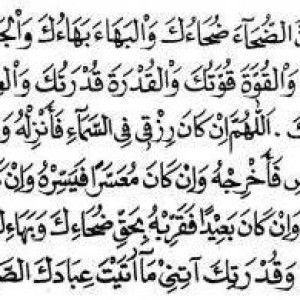 الضُّحَآءَ ضُحَاءُكَ وَالْبَهَاءَ بَهَاءُكَ وَالْجَ
وَالْقُوَّةَ قُوَّتُكَ وَالْقُدْرَةَ قُدْرَتُكَ وَالْ
كَ . اَللّٰهُمَّ اِنْ كَانَ رِزْقِى فِى السَّمَآءِ فَأَنْزِلْهُ وَ
فَأَخْرِجْهُ وَاِنْ كَانَ مُعَسَّرًا فَيَسِّرْهُ وَاِنْ
وَاِنْ كَانَ بَعِيْدًا فَقَرِّبْهُ بِحَقِّ ضُحَاءِكَ وَبَهَاءِكَ
وَقُدْرَتِكَ آتِنِىْ مَآ اٰتَيْتَ عِبَادَكَ الصَّ